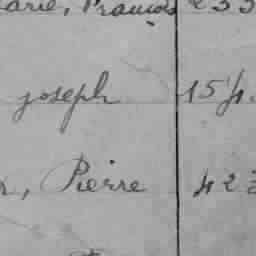 arie, François 233
joseph 154.
, Pierre 423